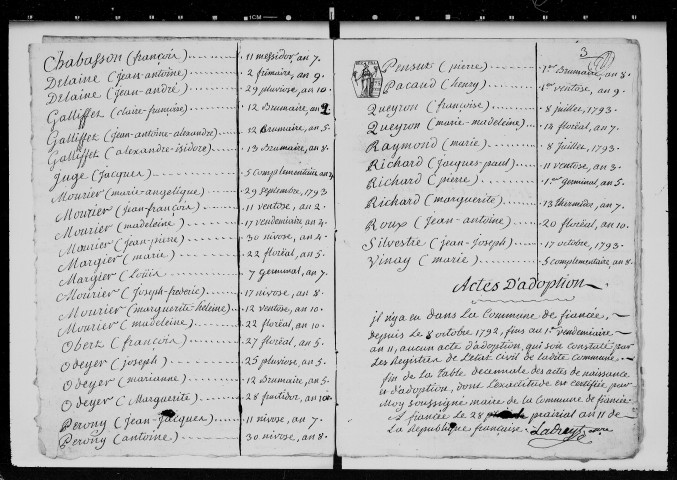 1CM
Chabasson (françois) 11 messidor, an 7.
Delaine (jean-antoine) 2 frimaire, an 9.
Delaine (jean-andré) 29 pluviose, an 10.
Galliffet (claire-françoise) 12 Brumaire, an 2
Galliffet (jean-antoine-alexandre) 12 Brumaire, an 5.
Galliffet (alexandre-isidore) 13 Brumaire, an 8.
Juge (jacques) 5 complementaire an
Mourier (marie-angelique) 29 septembre, 1793
Mourier (jean-françois) 11 ventose, an 2.
Mourier (madeleine) 17 vendemiaire an 4.
Mourier (jean-pierre) 30 nivose, an 4.
Margier (marie) 22 floréal, an 5.
Margier (Louis) 7 germinal, an 7.
Mourier (Joseph-frederic) 17 nivose, an 8.
Mourier (marguerite-heleine) 12 ventose, an 10.
Mourier (madeleine) 22 floréal, an 10.
Obert (françois) 27 floréal, an 5.
Odeyer (joseph) 25 pluviose, an 5.
Odeyer (marianne) 12 Brumaire, an 5.
Odeyer (Marguerite) 28 fructidor, an 10.
Perony (jean-jacques) 11 nivose, an 7.
Perony (antoine) 30 nivose, an 8.
3
Pensut (pierre) 1er Brumaire, an 8.
Pacaud (henry) 1er ventose, an 9.
Queyron (françoise) 8 juillet, 1793.
Queyron (marie-madeleine) 14 floréal, an 7.
Raymond (marie) 8 juillet, 1793.
Richard (Jacques-paul) 11 ventose, an 3.
Richard (pierre) 1er Germinal, an 5.
Richard (marguerite) 13 thermidor, an 7.
Roux (Jean-antoine) 20 floréal, an 10.
Silvestre (jean-Joseph) 17 octobre, 1793.
Vinay (marie) 5 complementaire, an 8.
Actes D'adoption
il n'ya eu dans La Commune de fiancée,
depuis Le 8 octobre 1792, fins au 1er vendemiaire
an 11, aucun acte d'adoption, qui soit constaté par
Les Registres de L'etat civil de Ladite commune.
fin de La Table decennale des actes de naissance
et d'adoption, dont L'exactitude est certifiée par
Moy soussigné maire de la Commune de fiancée
A fiancée Le 28 prairial an 11 de
La Republique française.